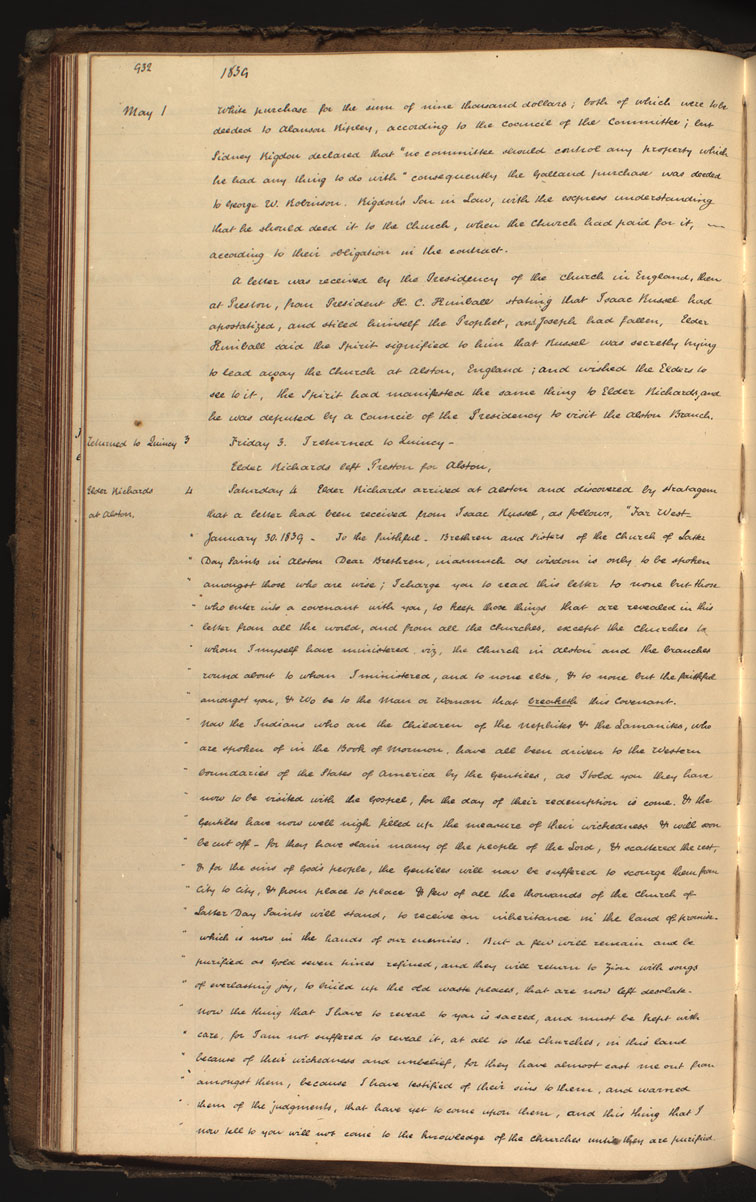 932
1839
May 1
White purchase for the sum of nine thousand dollars; both of which were to be
deeded to Alanson Ripley, according to the Council of the Committee; but
Sidney Rigdon declared that "no committee should control any property which
he had any thing to do with" consequently the Galland purchase was deeded
to George W. Robinson. Rigdon's Son in Law, with the express understanding
that he should deed it to the Church, when the Church had paid for it, —
according to their obligation in the contract.
A letter was received by the Presidency of the Church in England, then
at Preston, from President H. C. Kimball stating that Isaac Russel had
apostatized, and stiled himself the Prophet, and Joseph had fallen, Elder
Kimball said the Spirit signified to him that Russel was secretly trying
to lead away the Church at Alston, England; and wished the Elders to
see to it, the Spirit had manifested the same thing to Elder Richards, and
he was deputed by a Council of the Presidency to visit the Alston Branch.
returned to Quincy 3 Friday 3. I returned to Quincy –
Elder Richards left Preston for Alston,
Elder Richards 4 Saturday 4 Elder Richards arrived at Alston and discovered by stratagem
at Alston, that a letter had been received from Isaac Russel, as follows, "Far West–
" January 30. 1839 – To the faithful – Brethren and Sisters of the Church of Latter
" Day Saints in Alston Dear Brethren, inasmuch as wisdom is only to be spoken
" amongst those who are wise; I charge you to read this letter to none but those
" who enter into a covenant with you, to keep those things that are revealed in this
" letter from all the world, and from all the Churches, except the Churches to
" whom I myself have ministered, viz, the Church in Alston and the branches
" round about to whom I ministered, and to none else, & to none but the faithful
" amongst you, & Wo be to the Man or Woman that breaketh this Covenant.
" Now the Indians who are the Children of the Nephites & the Lamanites, who
" are spoken of in the Book of Mormon, have all been driven to the Western
" boundaries of the States of America by the Gentiles, as I told you they have
" now to be visited with the Gospel, for the day of their redemption is come, & the
" Gentiles have now well nigh filled up the measure of their wickedness & will soon
" be cut off – for they have slain many of the people of the Lord, & scattered the rest;
" & for the sins of God's people, the Gentiles will now be suffered to scourge them from
" City to City, & from place to place & few of all the thousands of the Church of
" Latter Day Saints will stand, to receive an inheritance in the land of promise–
" which is now in the hands of our enemies. But a few will remain and be
" purified as Gold seven times refined, and they will return to Zion with songs
" of everlasting joy, to build up the old waste places, that are now left desolate.
" Now the thing that I have to reveal to you is sacred, and must be kept with
" care, for I am not suffered to reveal it, at all to the Churches, in this land
" because of their wickedness and unbelief, for they have almost cast me out from
" amongst them, because I have testified of their sins to them, and warned
" them of the judgments, that have yet to come upon them, and this thing that I
" now tell to you will not come to the knowledge of the Churches until they are purified